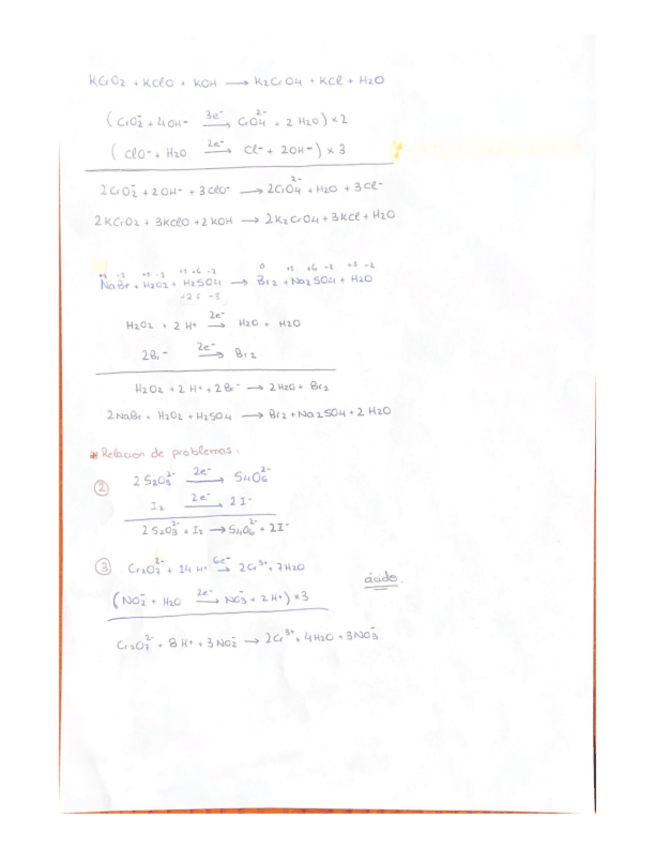 KCrO2 + KClO + KOH ⟶ K2CrO4 + KCl + H2O
( CrO2⁻ + 4OH⁻ 3e⁻⟶ CrO4²⁻ + 2 H2O ) × 2
( ClO⁻ + H2O 2e⁻⟶ Cl⁻ + 2OH⁻ ) × 3
2CrO2⁻ + 2OH⁻ + 3ClO⁻ ⟶ 2CrO4²⁻ + H2O + 3Cl⁻
2KCrO2 + 3KClO + 2KOH ⟶ 2K2CrO4 + 3KCl + H2O
0 +6 -2
NaBr + H2O2 + H2SO4 ⟶ Br2 + Na2SO4 + H2O
H2O2 + 2H⁺ 2e⁻⟶ H2O + H2O
2Br⁻ 2e⁻⟶ Br2
H2O2 + 2H⁺ + 2Br⁻ ⟶ 2H2O + Br2
2NaBr + H2O2 + H2SO4 ⟶ Br2 + Na2SO4 + 2 H2O
* Relación de problemas.
② 2 S2O3²⁻ 2e⁻⟶ S4O6²⁻
I2 2e⁻⟶ 2I⁻
2 S2O3²⁻ + I2 ⟶ S4O6²⁻ + 2I⁻
③ Cr2O7²⁻ + 14 H⁺ 6e⁻⟶ 2Cr³⁺ + 7H2O
ácido.
( NO2⁻ + H2O 2e⁻⟶ NO3⁻ + 2H⁺ ) × 3
Cr2O7²⁻ + 8H⁺ + 3NO2⁻ ⟶ 2Cr³⁺ + 4H2O + 3NO3⁻